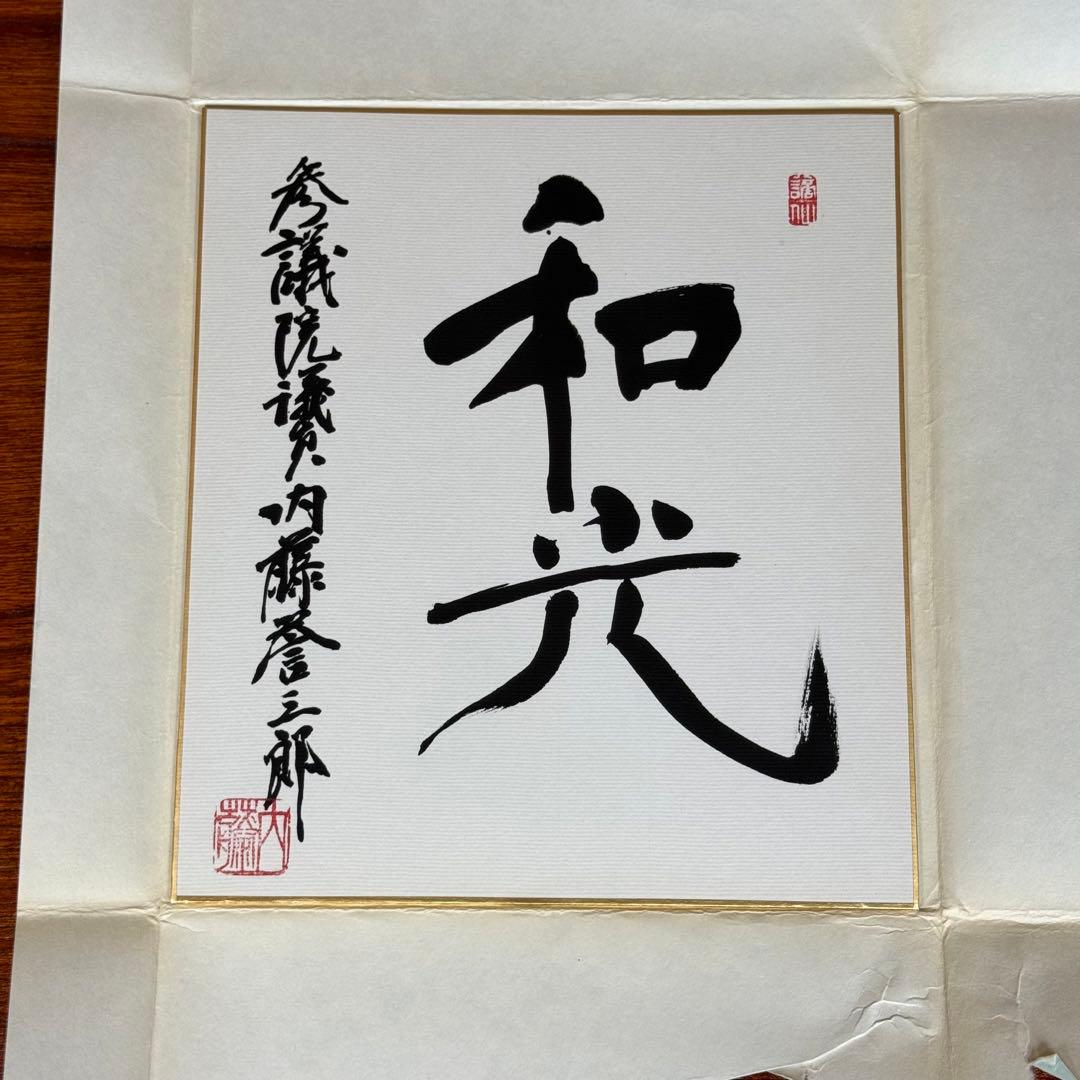 和光
参議院議員内藤誉三郎
内藤